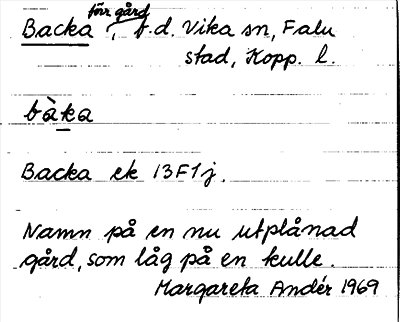 Backa, förr gård, f.d. Vika sn, Falu
stad, Kopp. l.
bàka
Backa ek 13F1j.
Namn på en nu utplånad
gård, som låg på en kulle.
Margareta Andér 1969